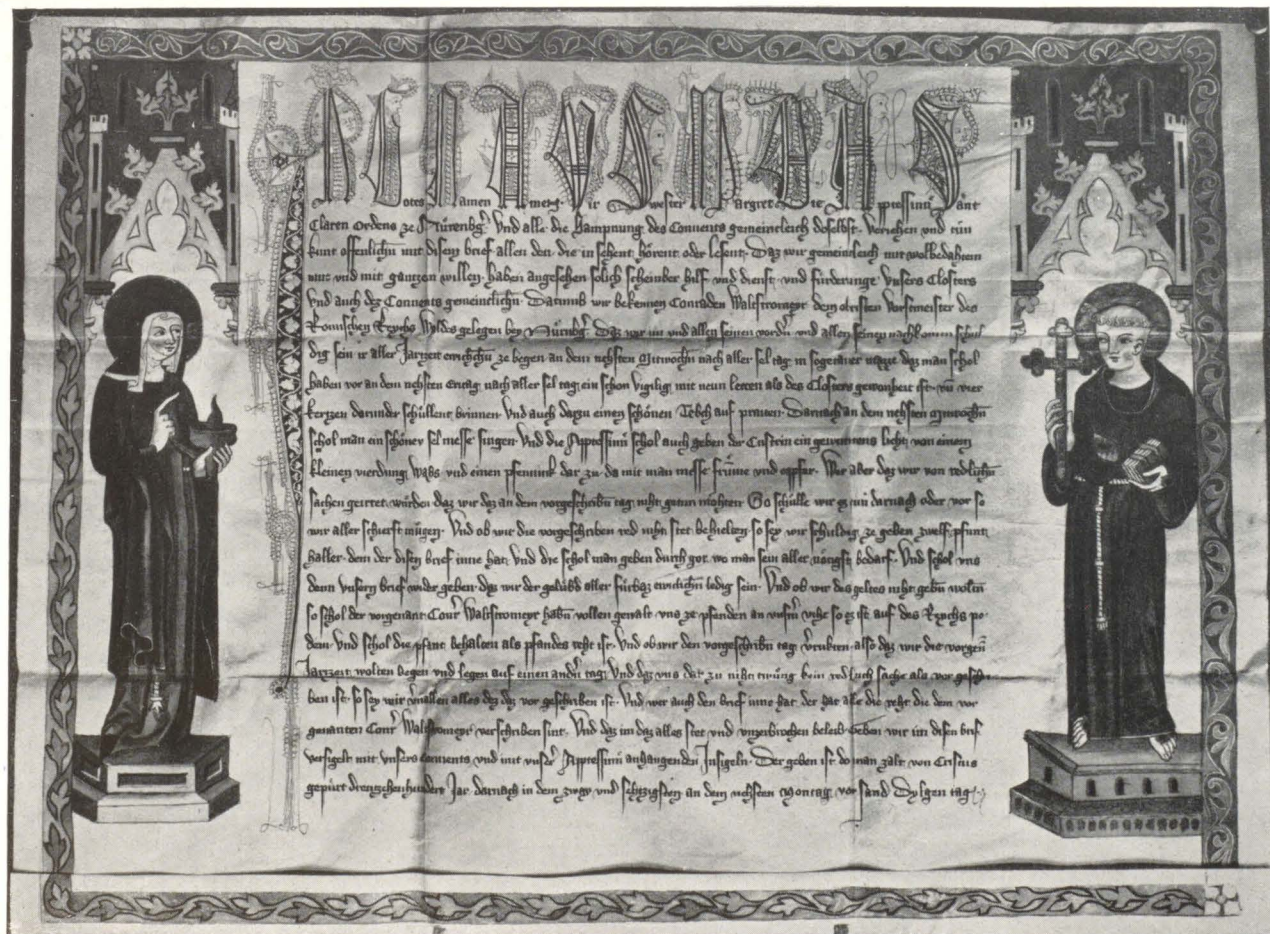 In Gotes Namen Amen Wir Swester Margret Die Apptessinn Sant
Claren Ordens ze Nürenbg. Vnd alle die Sampnung des Conuents gemeincleich doselbst. Veriehen vnd tün
kunt offenlichn mit disem brief allen den die in sehent hörent oder lesent. Daz wir gemeincleich mit wolbedahtem
mut vnd mit gantzen willen haben angesehen solich scheinber hilf vnd dienst vnd fürderunge vnsers Closters
vnd auch dez Conuents gemeinclichn. Darumb wir bekennen Conraden Walstromeyr dem obristen Vorstmeister des
Romischen Reychs Waldes gelegen bey Nürnbg. Daz wir im vnd allen seinen vordn vnd allen seinen nachkomen schul
dig sein ir aller Jarzeit ewichlichn ze begen an dem nehsten Mitwochn nach aller sel tag in sogetaner mazze daz man schol
haben vor an dem nehsten Eritag nach aller sel tag ein schon vigilig mit neun letzen als des Closters gewonheit ist. vn vier
kertzen darunder schüllent brinnen. Vnd auch darzu einen schönen Tebch auf preiten. Darnach an dem nehsten Mitwochn
schol man ein schöney sel messe singen. Vnd die Apptessinn schol auch geben der Custrein ein gewuntens licht von einem
kleinen vierdung wahs vnd einen pfennink dar zu da mit man messe frume vnd oppfer. Wer aber daz wir von redlichn
sachen geirret würden daz wir daz an dem vorgeschribn tag niht getun mohten So schülle wir ez tun darnach oder vor so
wir aller schierst mügen. Vnd ob wir die vorgeschriben red niht stet behielten so sey wir schuldig ze geben zwelf pfunt
haller dem der disen brief inne hat. Vnd die schol man geben durch got wo man sein aller nötigst bedarf. Vnd schol vns
denn vnsern brief wider geben daz wir der gelübd aller fürbaz ewiclichn ledig sein. Vnd ob wir des geltes niht gebn woltn
so schol der vorgenant Conr Walstromeyr habn vollen gewalt vns ze pfenden an vnserm vihe so ez ist auf des Reychs po
dem. Vnd schol die pfant behalten als pfandes reht ist. Vnd ob wir den vorgeschribn tag verrukten also daz wir die vorgen
Jarzeit wolten begen vnd legen auf einen andn tag Vnd daz vns dar zu niht twüng kein redlich sache als vor geschri
ben ist. so sey wir veruallen alles dez daz vor geschriben ist. Vnd wer auch den brief inne hat der hat alle die reht die dem vor
genanten Conr Walstromeyr verschriben sint. Vnd daz im daz alles stet vnd vnzerbrochen beleib Geben wir im disen brif
versigelt mit vnsers Conuents vnd mit vnser Apptessinn anhangenden Insigeln. Der geben ist do man zalt von Cristus
gepurt drewzehenhundert Jar darnach in dem zwey vnd sehtzigsten an dem nehsten Montag vor sand Dylgen tag